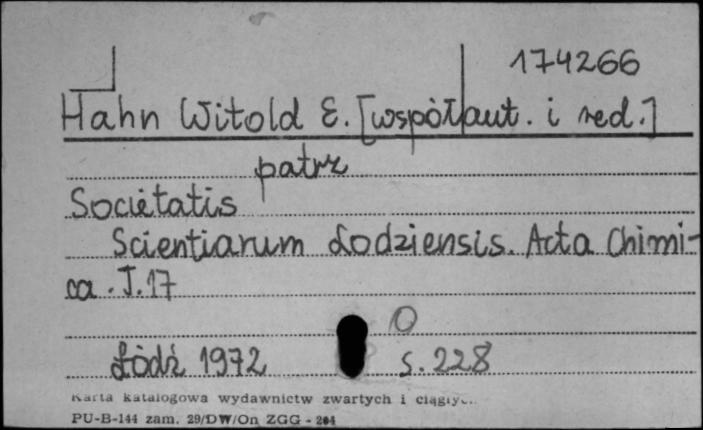 174266
Hahn Witold E. [współaut. i red.]
patrz
Societatis
Scientiarum Łodziensis. Acta Chimi-
ca. T. 17
O
Łódź 1972 s. 228
Karta katalogowa wydawnictw zwartych i
PU-B-144 zam. 29/DW/On ZGG - 204